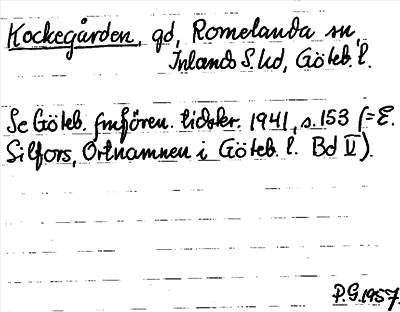 Kockegården, gd, Romelanda sn,
Inlands S. hd, Göteb. l.
Se Göteb. fmfören. tidskr. 1941, s. 153 (= E.
Silfors, Ortnamnen i Göteb. l. Bd II).
P.G. 1957.